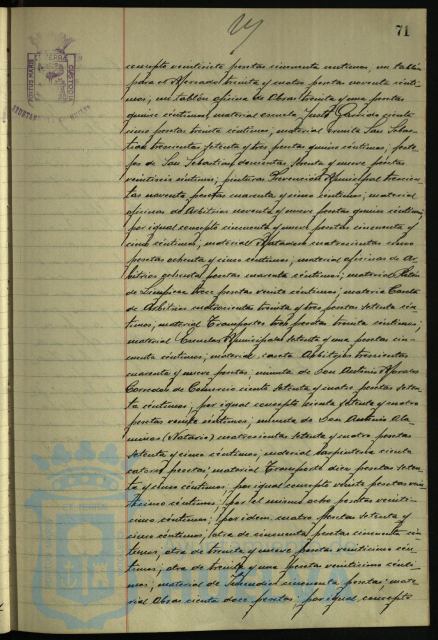 71
concepto veintisiete pesetas cincuenta centimos, un tablón
para el Mercado treinta y cuatro pesetas noventa centi-
mos, un tablón oficina de Obras treinta y una pesetas
quince centimos, material escuela Justo Garrido ciento
cinco pesetas treinta centimos, material ermita San Sebas-
tian trescientas setenta y tres pesetas quince centimos, feste-
jos de San Sebastian doscientas treinta y nueve pesetas
veinticinco centimos; pinturas Prevencion Municipal trescien-
tas noventa pesetas cuarenta y cinco centimos; material
oficinas de Arbitrios noventa y nueve pesetas quince centimos;
por igual concepto cincuenta y nueve pesetas cincuenta y
cinco centimos, material Matadero cuatrocientas cinco
pesetas ochenta y cinco centimos, material oficinas de Ar-
bitrios ochenta pesetas cuarenta centimos; material
de Limpieza trece pesetas veinte centimos; material Caseta
de Arbitrios cuatrocientas treinta y tres pesetas setenta cen-
timos; material Transportes tres pesetas treinta centimos;
material Escuelas Municipales setenta y una pesetas cin-
cuenta centimos; material caseta Arbitrios trescientas
cuarenta y nueve pesetas; minuta de Don Antonio Morales
Corredor de Comercio ciento setenta y cuatro pesetas seten-
ta centimos; por igual concepto ciento setenta y cuatro
pesetas veinte centimos; minuta de Don Antonio Ala-
minos (Notario) cuatrocientas setenta y cuatro pesetas
setenta y cinco centimos; material carpinteria ciento
catorce pesetas; material Transporte diez pesetas seten-
ta y cinco centimos, por igual concepto veinte pesetas vein-
ticinco centimos; por el mismo ocho pesetas veinti-
cinco centimos; por idem cuatro pesetas setenta y
cinco centimos, otra de cincuenta pesetas cincuenta cen-
timos; otra de treinta y nueve pesetas veinticinco cen-
timos; otra de treinta y una pesetas veinticinco centi-
mos; material de Incendios cincuenta pesetas; mate-
rial Obras ciento doce pesetas; por igual concepto